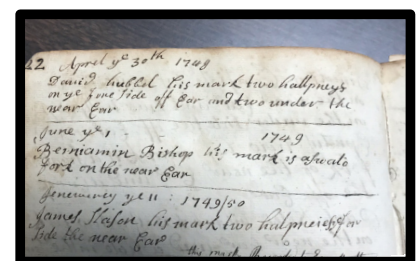 22 April ye 30th 1749
David hubbel his mark two hallpneys
on ye fore side off Ear and two under the
near Ear
June ye 1 1749
Beniamin Bishop his mark is a
fork on the near Ear
Jenewerey ye 11 : 1749/50
James his mark two halpneies for
side the near Ear
his mark